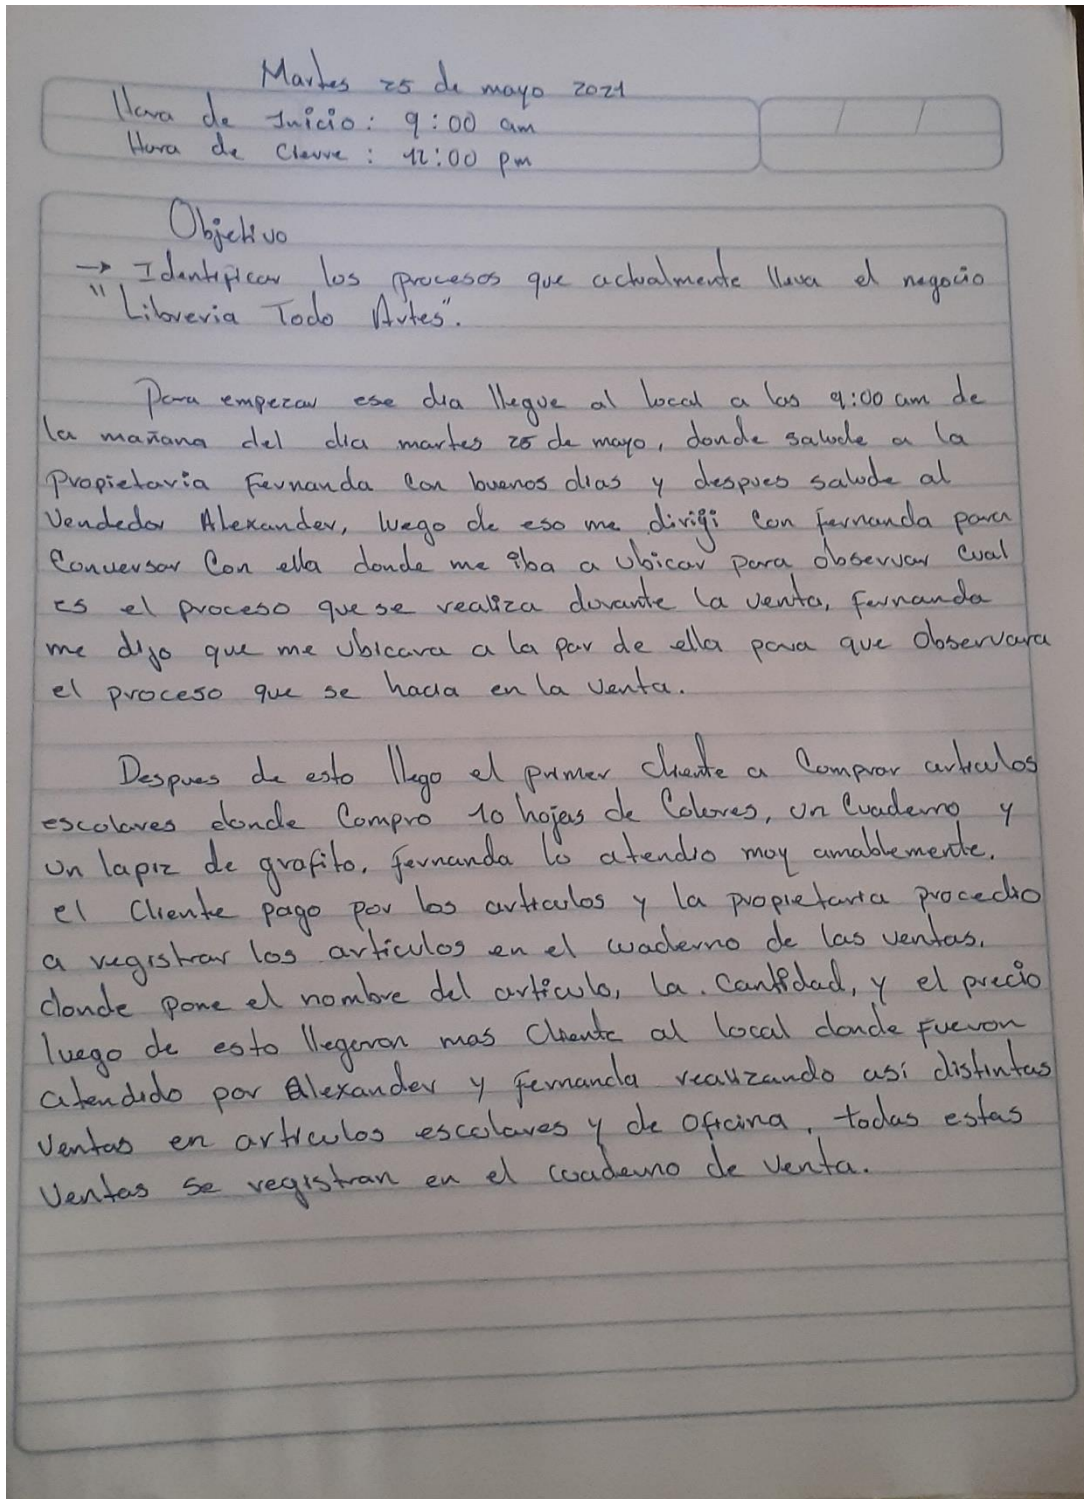 Martes 25 de mayo 2021
Hora de Inicio: 9:00 am
Hora de Cierre : 12:00 pm
Objetivo
→ Identificar los procesos que actualmente lleva el negocio
"Libreria Todo Artes".
Para empezar ese dia llegue al local a las 9:00 am de
la mañana del dia martes 25 de mayo, donde salude a la
Propietaria Fernanda con buenos dias y despues salude al
Vendedor Alexander, luego de eso me dirigi con Fernanda para
Conversar Con ella donde me iba a ubicar para observar cual
es el proceso que se realiza durante la venta, Fernanda
me dijo que me ubicara a la par de ella para que Observara
el proceso que se hacia en la venta.
Despues de esto llego el primer cliente a Comprar articulos
escolares donde Compro 10 hojas de Colores, un Cuaderno y
un lapiz de grafito, fernanda lo atendio muy amablemente.
el Cliente pago por los articulos y la propietaria procedio
a registrar los articulos en el cuaderno de las ventas.
donde pone el nombre del articulo, la. Cantidad, y el precio
luego de esto llegaron mas Cliente al local donde fueron
atendido por Alexander y fernanda realizando así distintas
Ventas en articulos escolares y de oficina, todas estas
Ventas se registran en el cuaderno de venta.